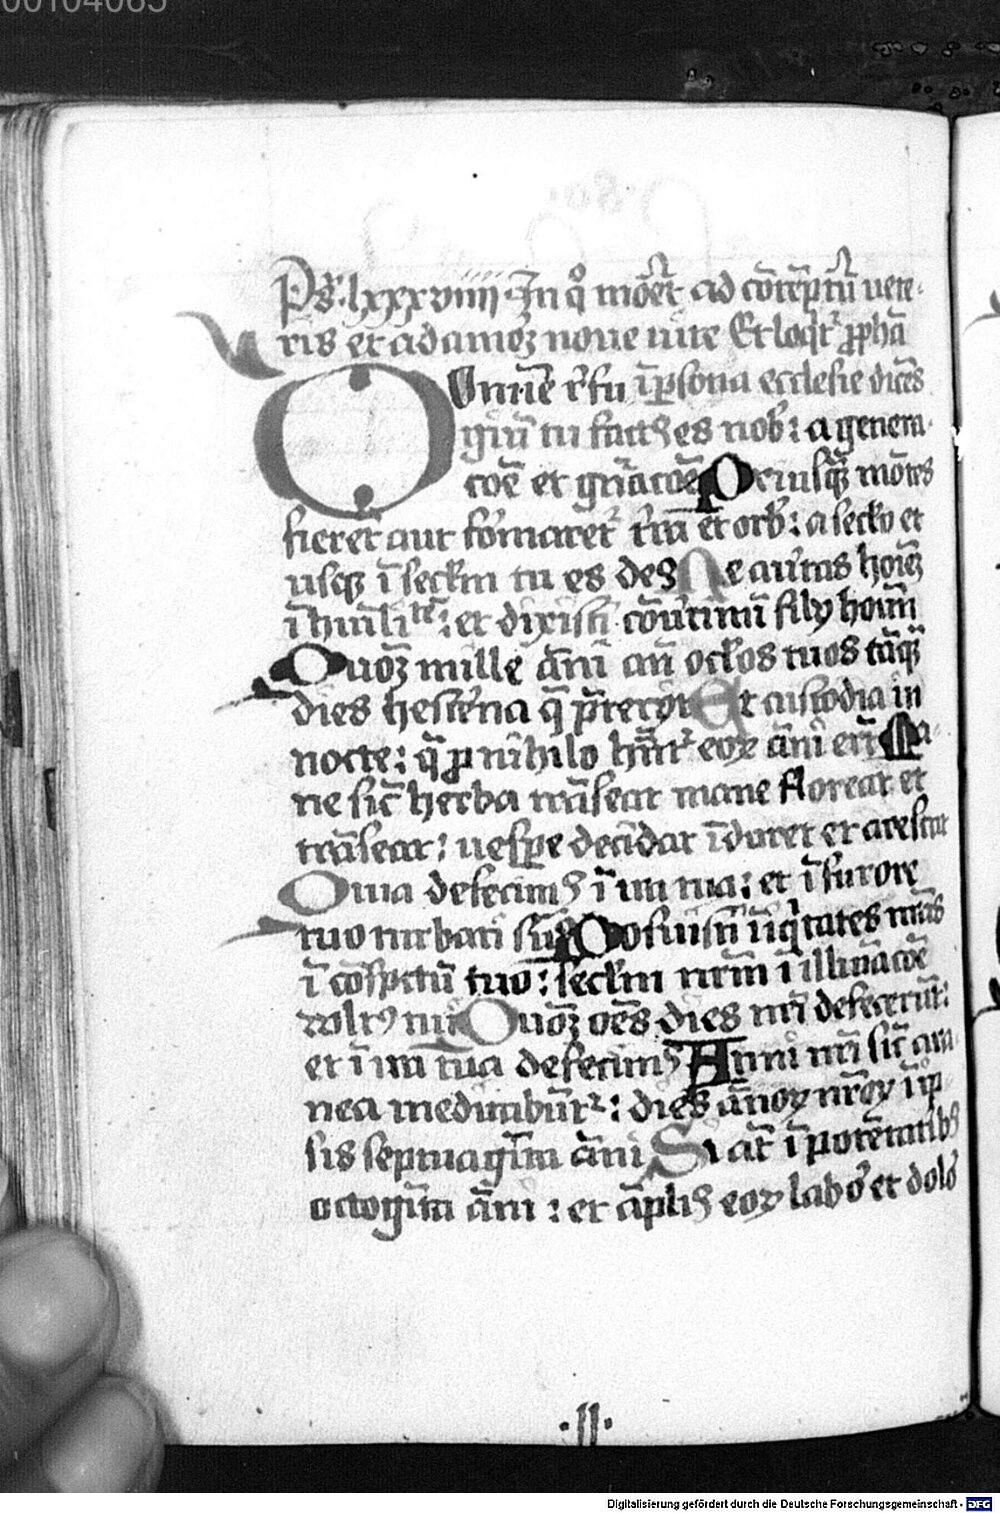 00104065
Ps̄. lxxxviiii In q̊ mōet̄ ad cōtēptū uete-
ris et ad amoꝫ noue uite Et loqͥt̄ ꝓpha
Domīe r̄fu ī ꝑsona ecclesie dicēs
giū tu factꝰ es nob̄: a genera-
cōē et gn̄acōē Priusqͣꝫ mōtes
fierēt aut formaret̄ t̄ra et orb̄: a sec̄lo et
usqꝫ ī sec̄lm tu es deꝰ Ne au̅tas hoīeꝫ
ī humīlitē: et dixisti cōu̅timī filij hoīm
Quoꝫ mille āni an̄ oc̄los tuos tāqͣꝫ
dies hest̄na q̄ p̄terijt Et custodia in
nocte: q̄ ꝓ nihilo hn̄tᷣ eoꝝ āni er̄t Ma-
ne sic̄ herba trāseat mane floreat et
trāseat: uesꝑe decidat īduret et arescat
Quia defecimꝰ ī ira tua: et ī furore
tuo turbati sūꝰ Posuisti īiqͥtates nr̄as
ī cōspectu tuo: sec̄lm nr̄m ī illūacōē
uultꝰ tui Quoꝫ oēs dies nr̄i defecerūt:
et ī ira tua defecimꝰ Anni nr̄i sic̄ ara-
nea meditabūtᷣ: dies ānoꝝ nr̄oꝝ ī ip-
sis septuagīta āni Si āt ī potētatibꝰ
octogīta āni: et āpliꝰ eoꝝ labō et dolō
·II·
Digitalisierung gefördert durch die Deutsche Forschungsgemeinschaft - DFG